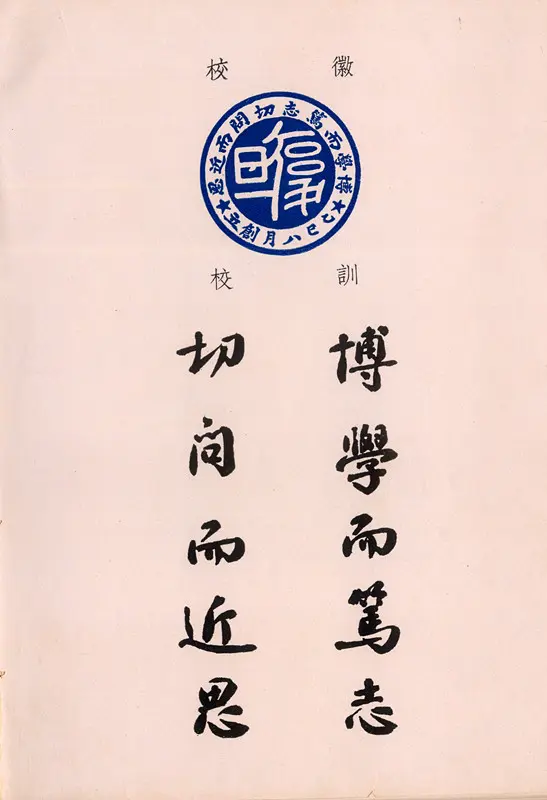 校徽
博學而篤志切問而近思
復旦
乙巳八月創立
校訓
博學而篤志
切問而近思